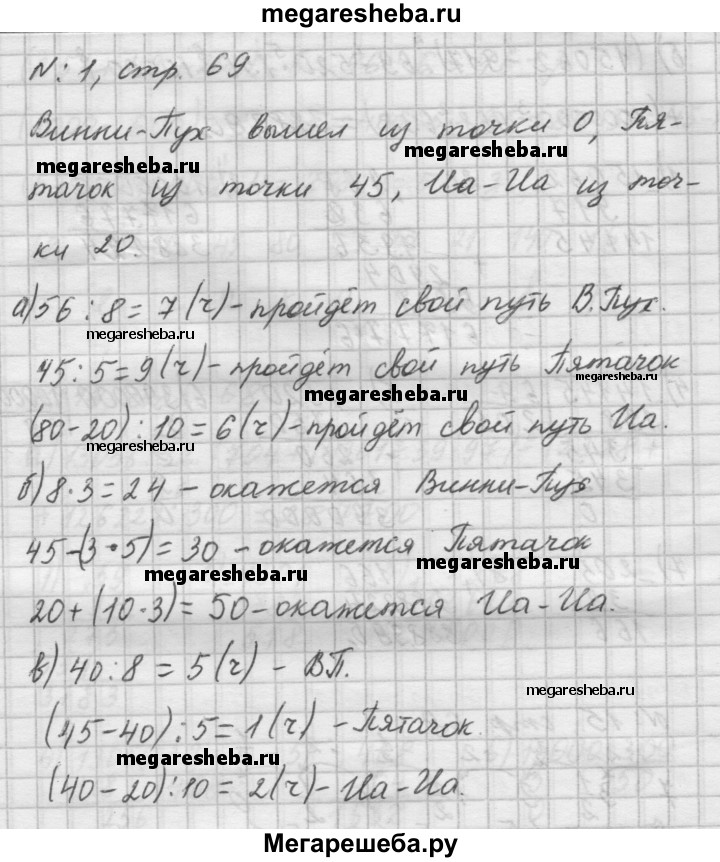 megaresheba.ru
№: 1, стр. 69
Винни-Пух вышел из точки 0, Пя-
megaresheba.ru megaresheba.ru
тачок из точки 45, Иа-Иа из точ-
ки 20.
а) 56 : 8 = 7 (ч) - пройдёт свой путь В.Пух.
megaresheba.ru
45 : 5 = 9 (ч) - пройдёт свой путь Пятачок
megaresheba.ru megaresheba.ru
(80-20) : 10 = 6 (ч) - пройдёт свой путь Иа.
megaresheba.ru
б) 8 · 3 = 24 - окажется Винни-Пух
megaresheba.ru
45-(3·5) = 30 - окажется Пятачок
megaresheba.ru megaresheba.ru
20+(10·3) = 50 - окажется Иа-Иа.
в) 40 : 8 = 5 (ч) - ВП.
megaresheba.ru
(45-40) : 5 = 1 (ч) - Пятачок.
megaresheba.ru
(40-20) : 10 = 2 (ч) - Иа-Иа.
Мегарешеба.ру